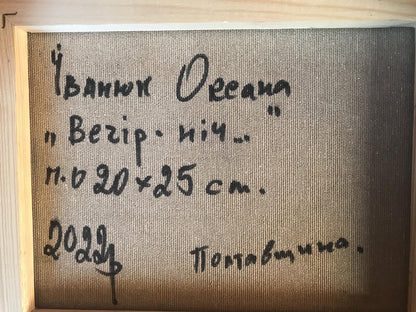 Їванюк Оксана
„Вечір-ніч..."
п.о 20×25 см.
2022р
Полтавщина.